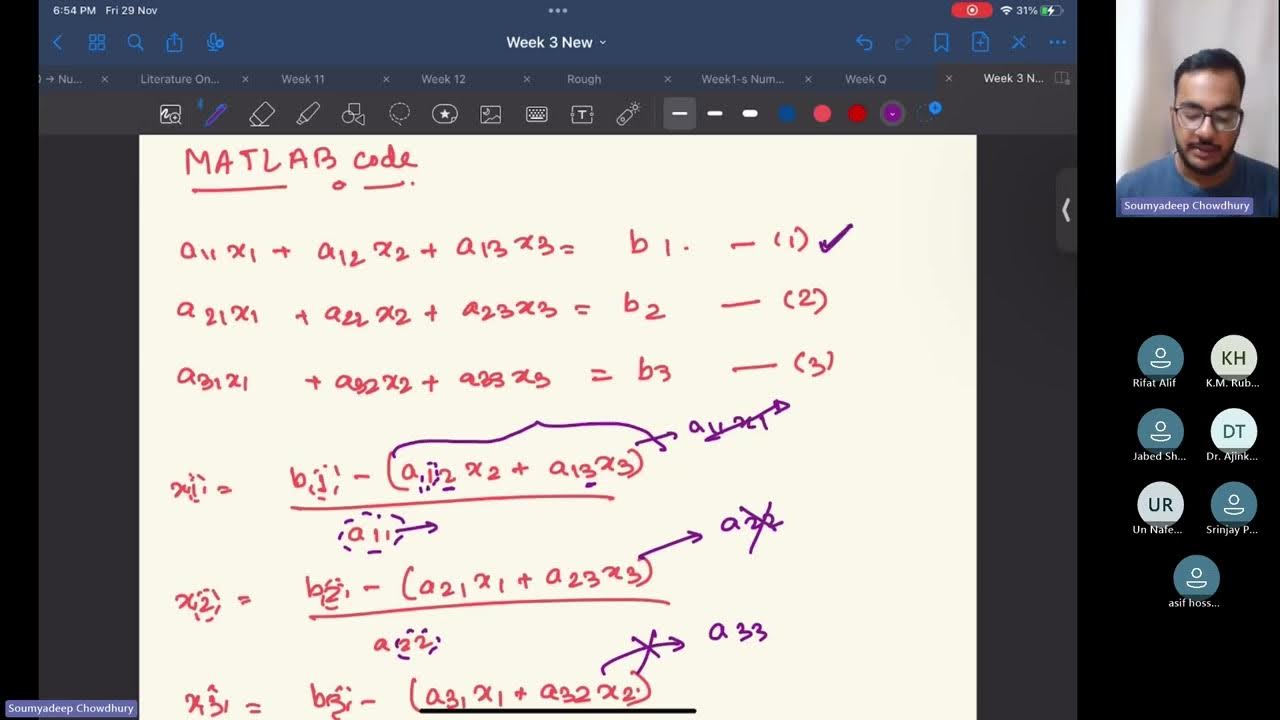 6:54 PM Fri 29 Nov
31%
Week 3 New
→ Nu...
Literature On...
Week 11
Week 12
Rough
Week1-s Num...
Week Q
Week 3 N...
MATLAB code
a11x1 + a12x2 + a13x3 = b1. — (1) ✓
a21x1 + a22x2 + a23x3 = b2 — (2)
a31x1 + a32x2 + a23x3 = b3 — (3)
a11x1
x1 = b1 - (a12x2 + a13x3)
a11
a22
x2 = b2 - (a21x1 + a23x3)
a22
a33
x3 = b3 - (a31x1 + a32x2)
Soumyadeep Chowdhury
Soumyadeep Chowdhury
Rifat Alif
KH
K.M. Rub...
Jabed Sh...
DT
Dr. Ajink...
UR
Un Nafe...
Srinjay P...
asif hoss...